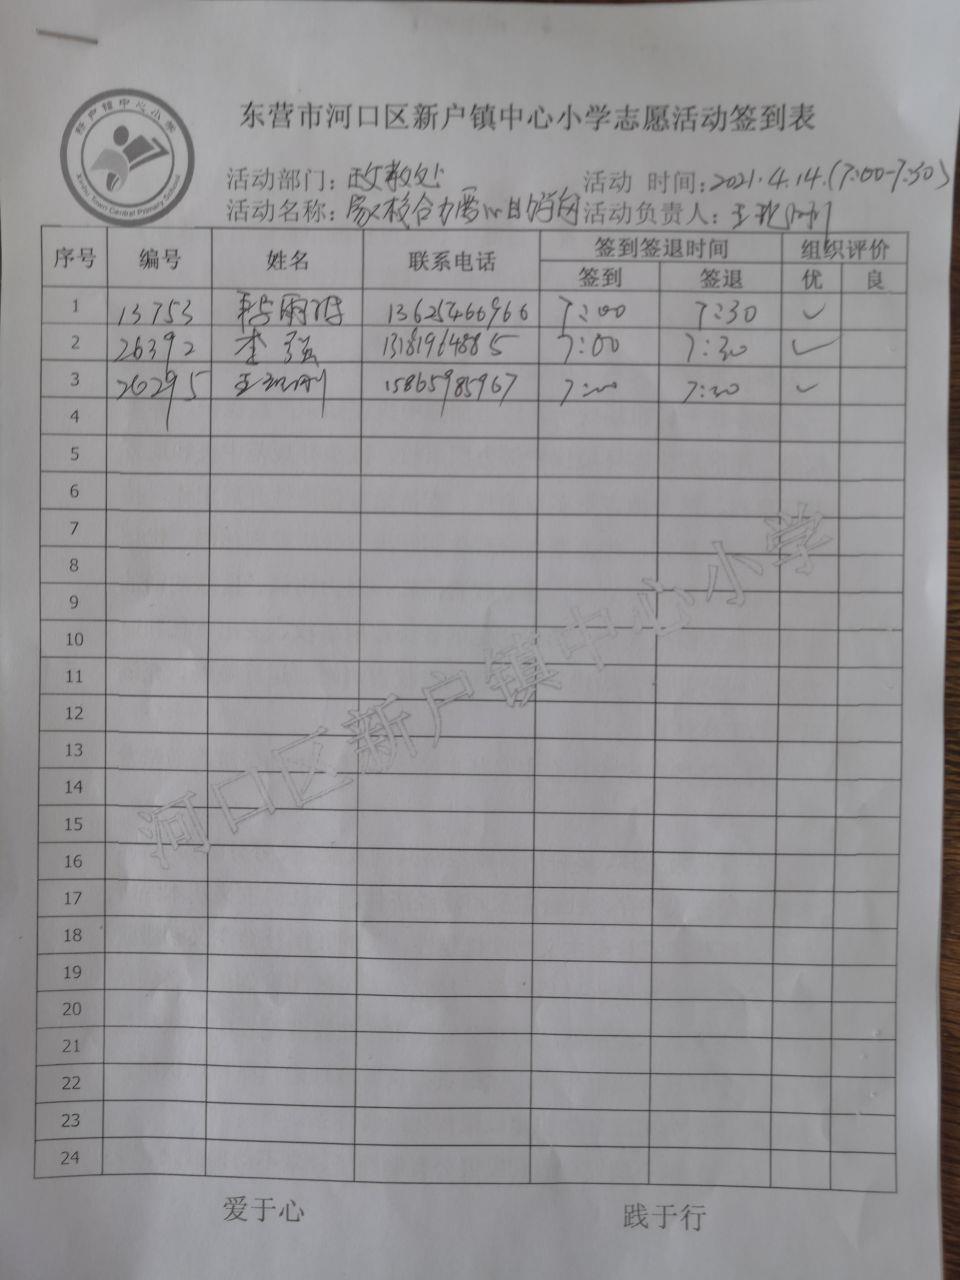 新户镇中心小学
Xinhu Town Central Primary School
东营市河口区新户镇中心小学志愿活动签到表
活动部门：政教处 活动 时间：2021.4.14.(7:00-7:30)
活动名称：家校合力 活动负责人：王
序号 编号 姓名 联系电话 签到签退时间 组织评价
签到 签退 优 良
1 13753 13625466966 7:00 7:30 ✓
2 26392 李强 13181964885 7:00 7:30 ✓
3 26295 王 15865985967 7:00 7:30 ✓
4
5
6
7
8
9
10
11
12
13
14
15
16
17
18
19
20
21
22
23
24
河口区新户镇中心小学
爱于心 践于行